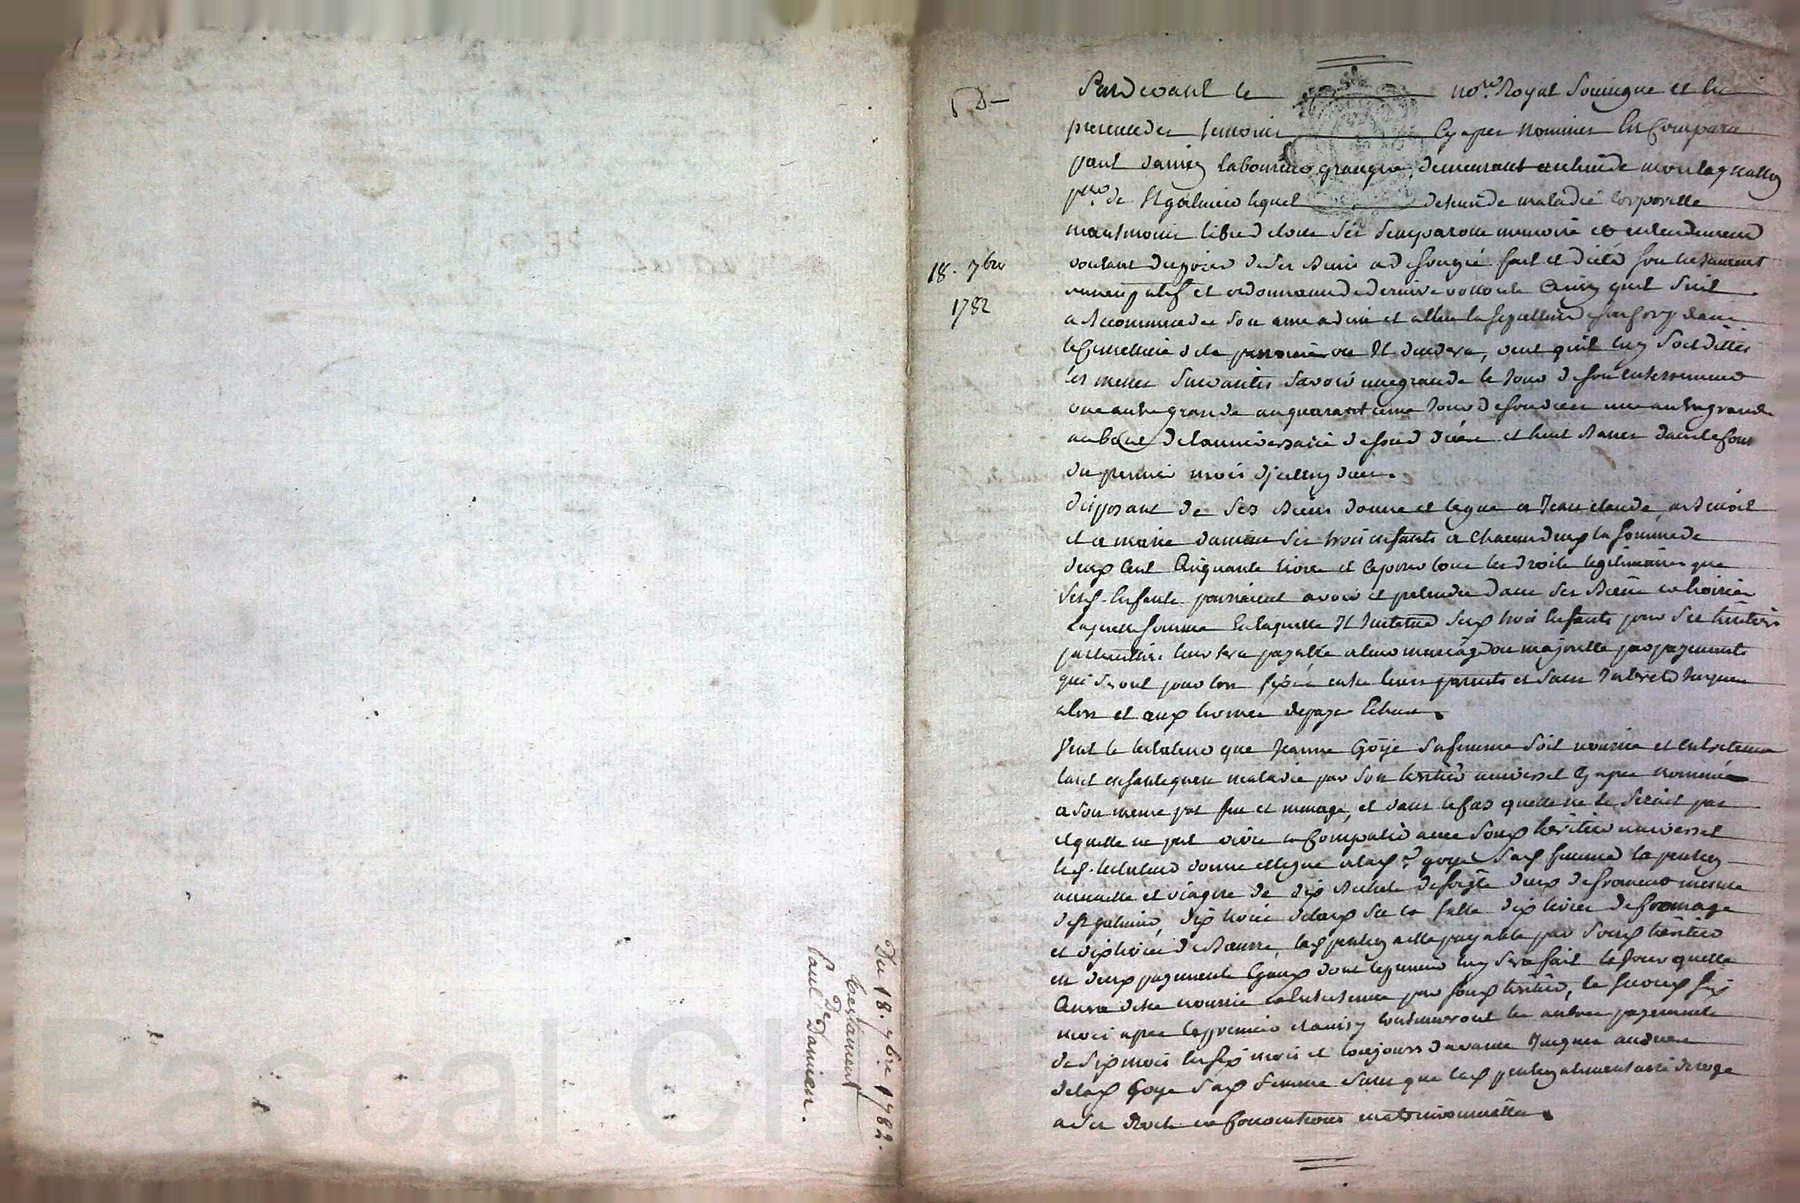 Du 18. 7bre 1782.
Testament
De
Paul Damien.
18. 7bre
1782
Pardevant le no.re Royal Soussigné et en
presence des temoins cy apres nommés fut Comparu
paul damien laboureur granger, demeurant au lieu de
p.sse de St galmier lequel detenu de maladie corporelle
neantmoins libre de tous ses sens parole memoire et entendement
voulant disposer de ses Biens a de son gré fait et dicté son testament
nuncupatif et ordonnance de derniere volonté Ainsy quil suit
a Recommandé son ame a dieu et élu la sepulture de son corps dans
le Cimetiere de la parroisse ou Il decedera, veut quil luy soit dittes
les messes suivantes savoir une grande le jour de son enterrement
une autre grande au quarantieme jour de son deces une autre grande
au bout de l'anniversaire de sond. deces et huit Basses dans le cour
du premier mois d'jcelluy deces.
disposant de ses Biens donne et legue a Jean claude, a Benoit
et a marie damien ses trois enfants a chacun deux la somme de
deux Cent Cinquante livres et ce pour tous les droits legitimaires que
sesd. Enfants pourroient avoir et pretendre dans ses Biens et hoirie
Laquelle somme En laquelle Il Institue sesd trois Enfants pour ses heritiers
particuliers leur sera payable a leur mariage ou majorité par payements
qui seront pour lors fixés entre leurs parents et sans Interets jusques
alors et aux termes depasses echus.
Veut le testateur que Jeanne Goÿe sa femme soit nourrie et entretenue
tant en santé quen maladie par son heritier universel Cy apres nommé
a son meme pot feu et menage, et dans le cas quelle ne le seroit pas
et quelle ne put vivre et compatir avec sond heritier universel
led. testateur donne et legue a lad.e goye sad femme la pention
annuelle et viagere de dix Bichets de seigle deux de froment mesure
de St galmier, dix livres de lard la salle dix livres de fromage
et dix livres de Beurre, lad pention a elle payable par sond heritier
en deux payements Egaux dont le premier luy sera fait le jour quelle
Cessera detre nourrie et entretenue par sond heritier, le second six
mois apres le premier et ainsy continueront les autres payements
de six mois en six mois et toujours d'avance jusques au deces
de lad Goye sad femme sans que lad pention alimentaire deroge
a ses droits et conventions matrimonialles.